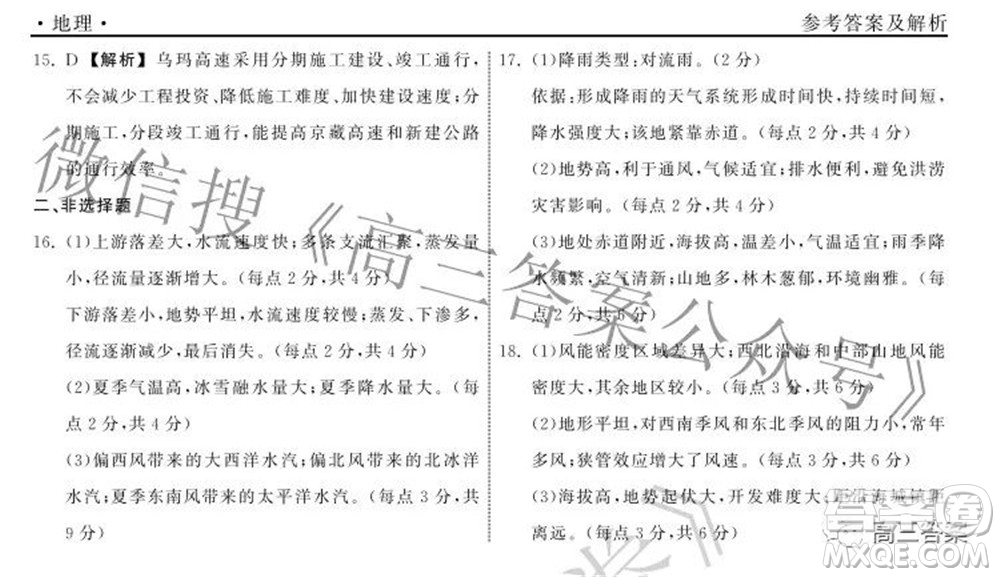 ·地理·
参考答案及解析
15. D【解析】乌玛高速采用分期施工建设、竣工通行,
不会减少工程投资、降低施工难度、加快建设速度;分
期施工,分段竣工通行,能提高京藏高速和新建公路
的通行效率。
二、非选择题
16. (1)上游落差大,水流速度快;多条支流汇聚,蒸发量
小,径流量逐渐增大。(每点2分,共4分)
下游落差小,地势平坦,水流速度较慢;蒸发、下渗多,
径流逐渐减少,最后消失。(每点2分,共4分)
(2)夏季气温高,冰雪融水量大;夏季降水量大。(每
点2分,共4分)
(3)偏西风带来的大西洋水汽;偏北风带来的北冰洋
水汽;夏季东南风带来的太平洋水汽。(每点3分,共
9分)
17. (1)降雨类型:对流雨。(2分)
依据:形成降雨的天气系统形成时间快,持续时间短,
降水强度大;该地紧靠赤道。(每点2分,共4分)
(2)地势高,利于通风,气候适宜;排水便利,避免洪涝
灾害影响。(每点2分,共4分)
(3)地处赤道附近,海拔高,温差小,气温适宜;雨季降
水频繁,空气清新;山地多,林木葱郁,环境幽雅。(每
点2分,共6分)
18. (1)风能密度区域差异大;西北沿海和中部山地风能
密度大,其余地区较小。(每点3分,共6分)
(2)地形平坦,对西南季风和东北季风的阻力小,常年
多风;狭管效应增大了风速。(每点3分,共6分)
(3)海拔高,地势起伏大,开发难度大;距沿海城镇距
离远。(每点3分,共6分)
微信搜《高三答案公众号》
答案圈
高三答案
MXQE.COM